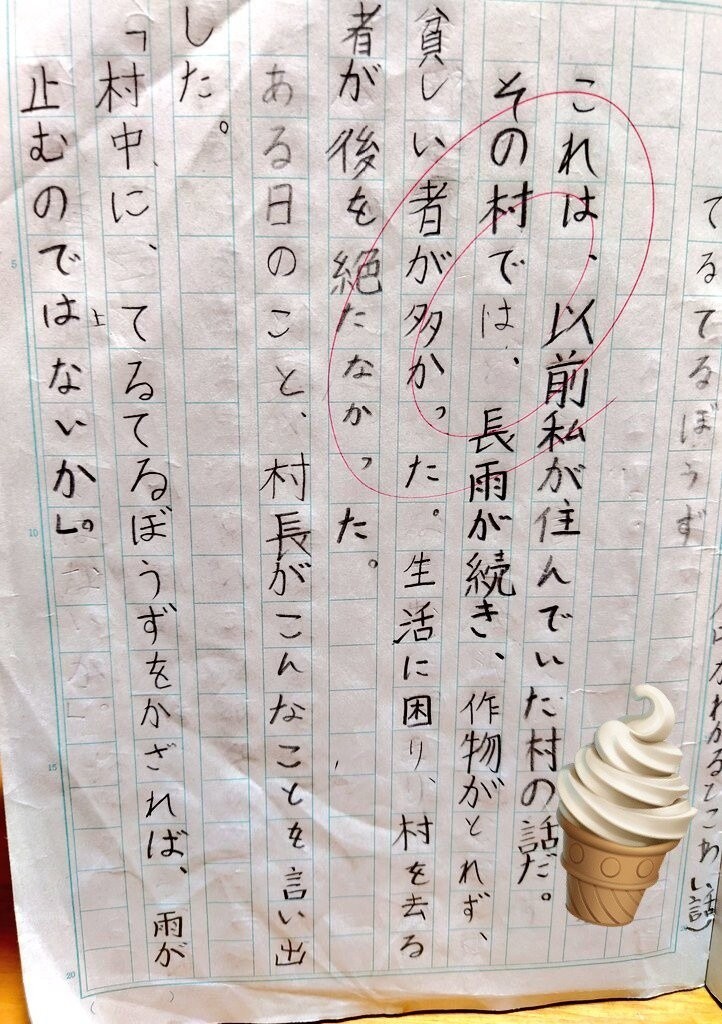 てるてるぼうず
わかるとこわい話)
これは、以前私が住んでいた村の話だ。
その村では、長雨が続き、作物がとれず、
貧しい者が多かった。生活に困り、村を去る
者が後を絶たなかった。
ある日のこと、村長がこんなことを言い出
した。
「村中に、てるてるぼうずをかざれば、雨が
止むのではないか」。
5
10
15
20